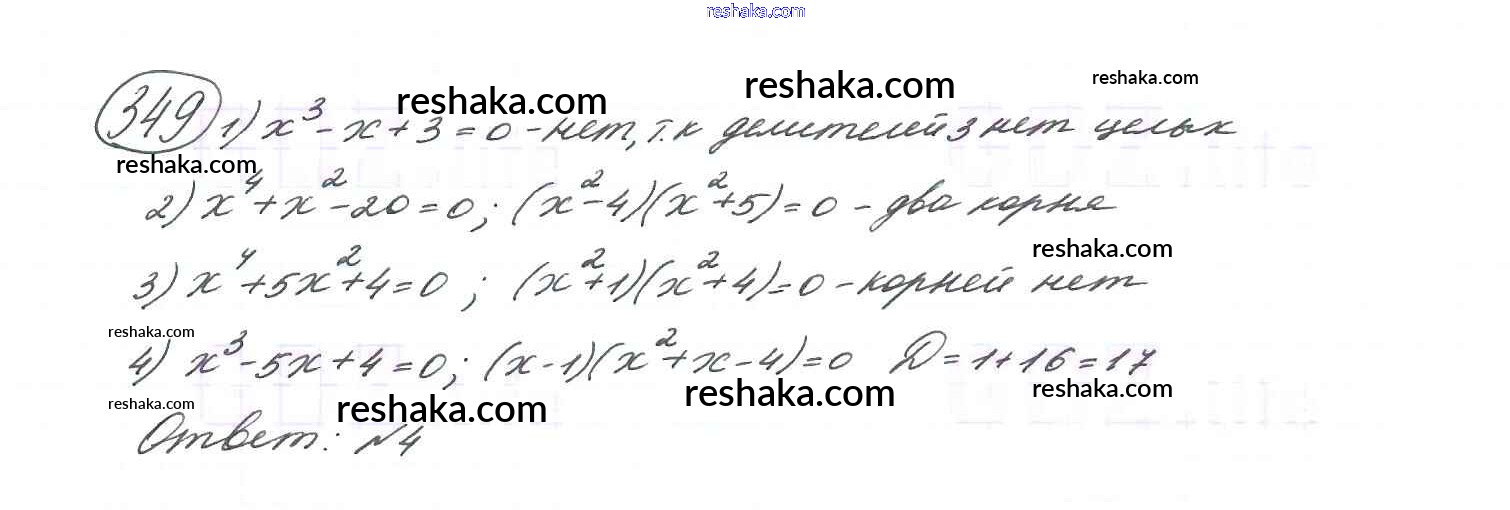 reshaka.com
reshaka.com reshaka.com reshaka.com
349 1) x³ - x + 3 = 0 - нет, т.к делителей 3 нет целых
reshaka.com
2) x⁴ + x² - 20 = 0; (x² - 4)(x² + 5) = 0 - два корня
reshaka.com
3) x⁴ + 5x² + 4 = 0; (x² + 1)(x² + 4) = 0 - корней нет
reshaka.com
4) x³ - 5x + 4 = 0; (x - 1)(x² + x - 4) = 0 D = 1 + 16 = 17
reshaka.com reshaka.com reshaka.com reshaka.com
Ответ: №4